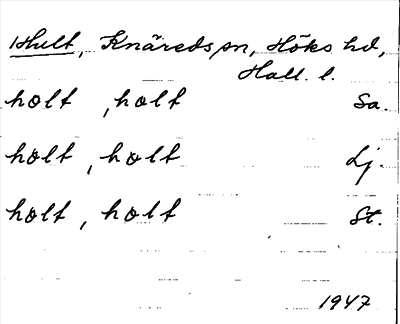 Hult, Knäreds sn, Höks hd,
Hall. l.
holt , holt Sa.
holt , holt Lj.
holt , holt St.
1947